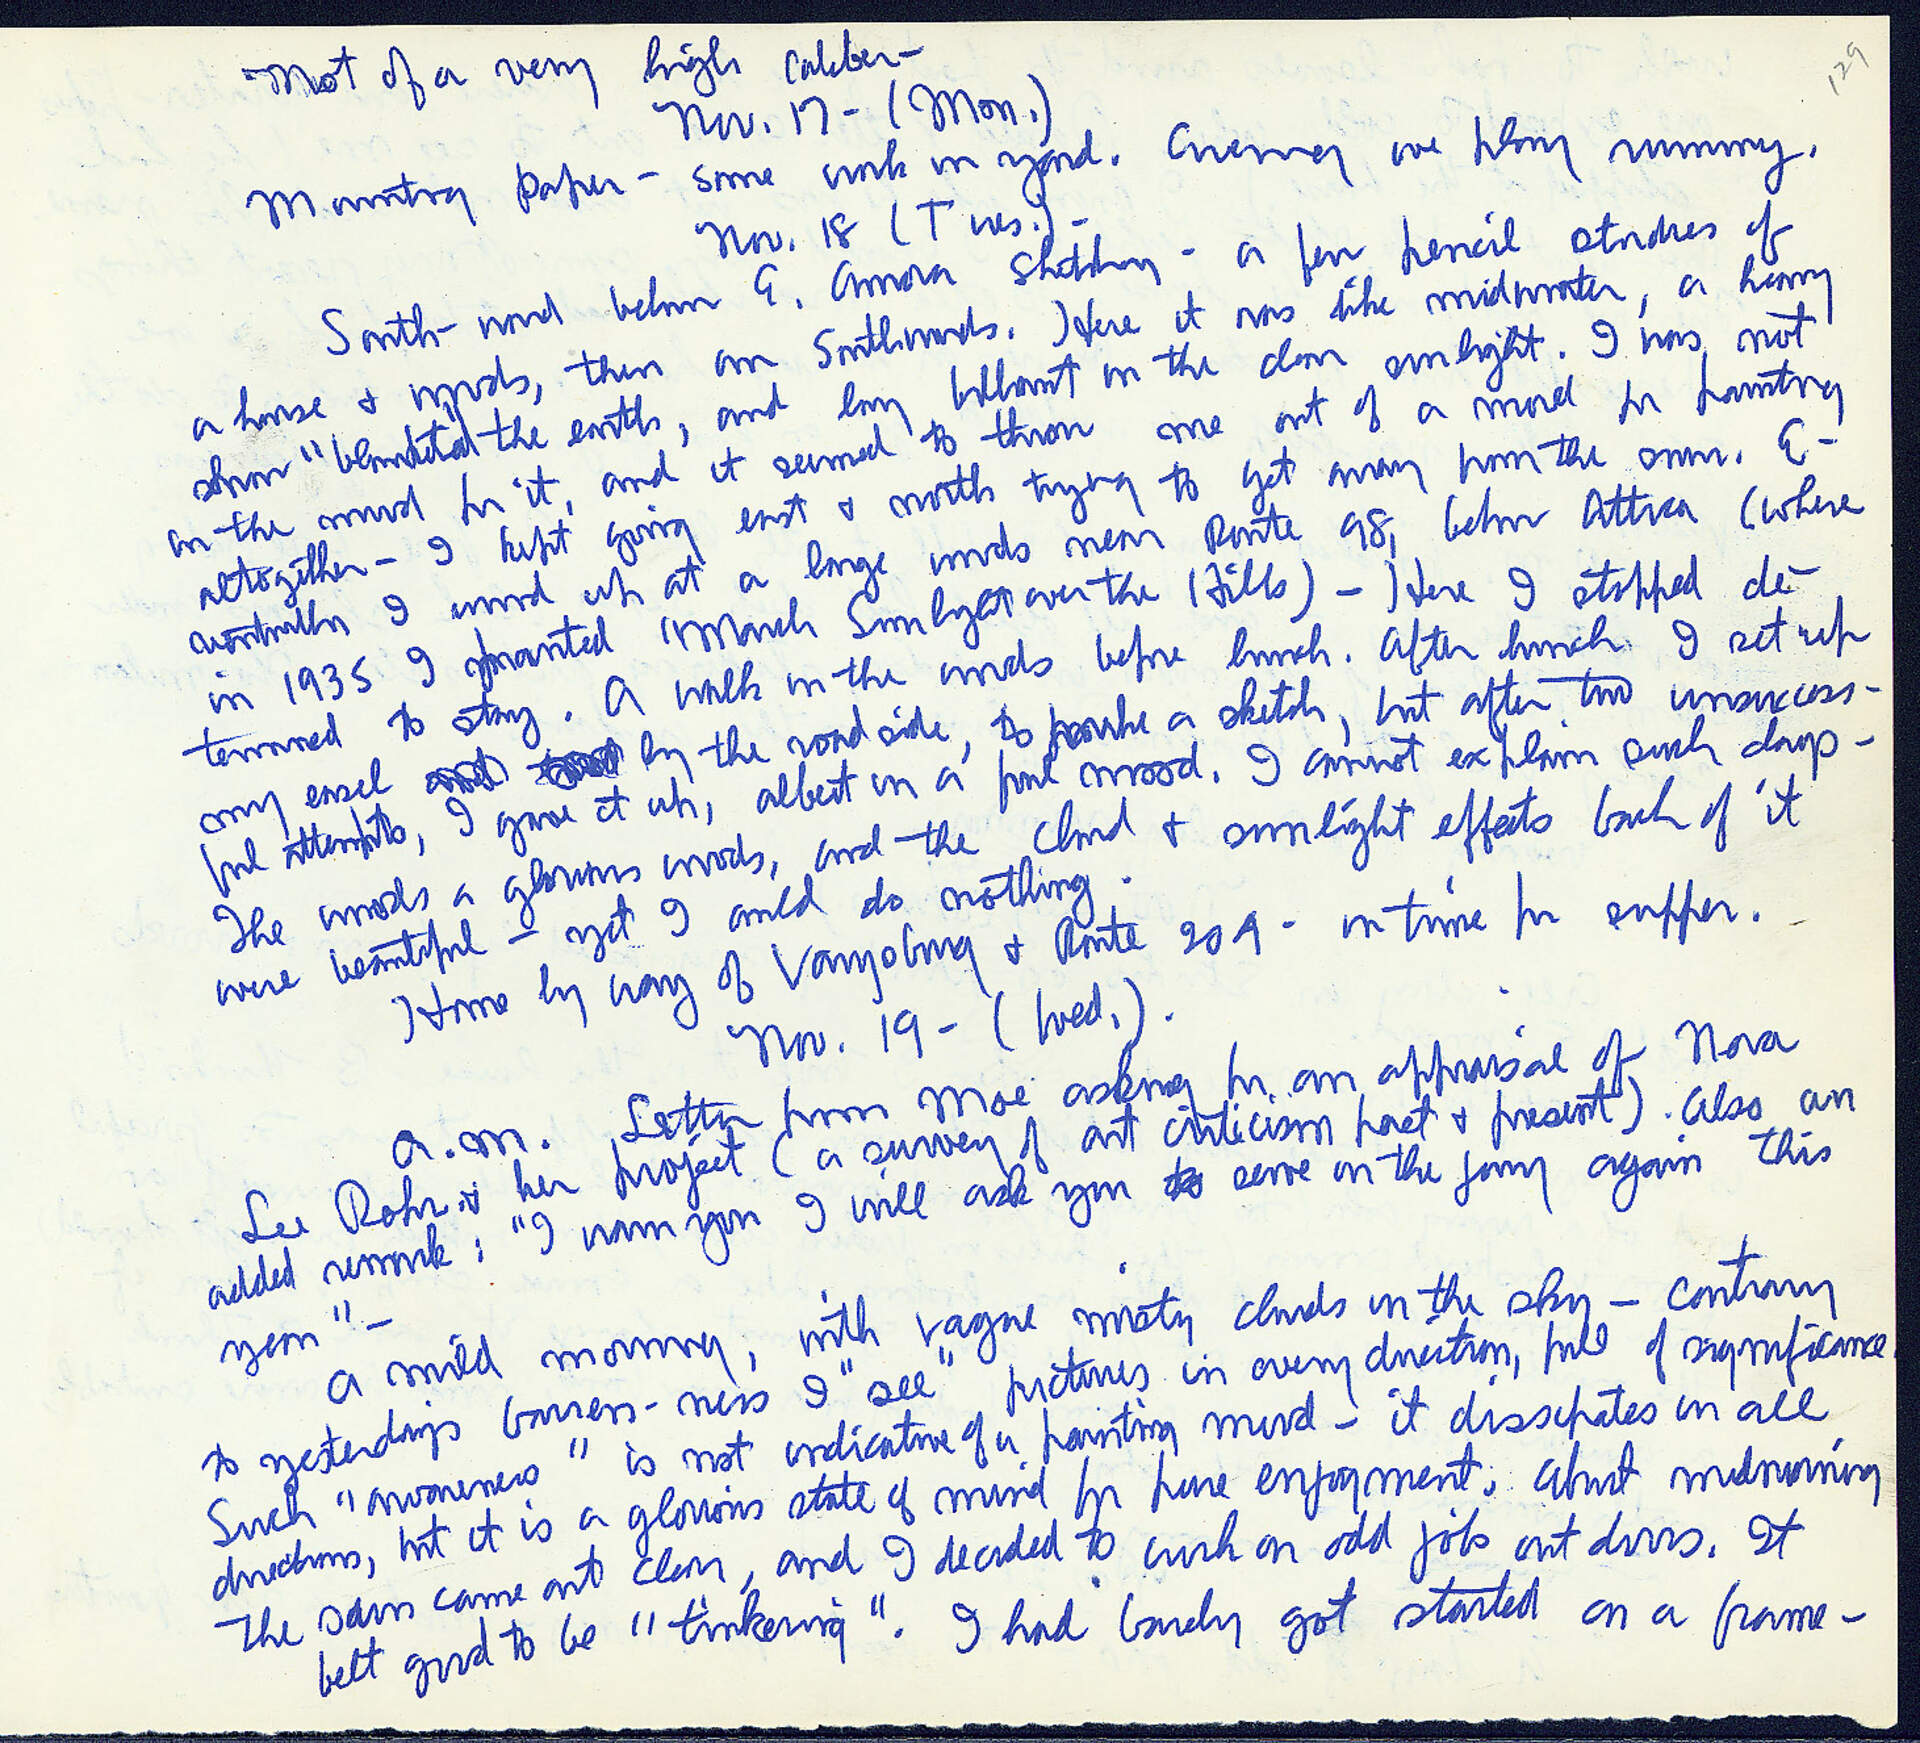 129
Not of a very high caliber—
Nov. 17 – (Mon.)
Mounting paper – some work in yard. Evening we play rummy.
Nov. 18 (Tues.) –
South-ward below E. Aurora sketching – a few pencil studies of
a house & woods, then on Southwards. Here it was like midwinter, a heavy
snow "blanketed the earth, and lay brilliant in the clear sunlight. I was not
in the mood for it, and it seemed to throw me out of a mood for painting
altogether – I kept going east & north trying to get away from the snow. E-
ventually I wound up at a large woods near Route 98, below Attica (where
in 1935 I painted "March Sunlight over the Hills) – Here I stopped de-
termined to stay. A walk in the woods before lunch. After lunch I set up
my easel by the roadside, to make a sketch, but after two unsuccess-
ful attempts, I gave it up, albeit in a foul mood. I cannot explain such days –
The woods a glorious woods, and the cloud & sunlight effects back of it
were beautiful – yet I could do nothing.
Home by way of Varysburg & Route 20A – in time for supper.
Nov. 19 – (Wed.).
A.M. Letter from Moe asking for an appraisal of Nora
Lee Rohr & her project (a survey of art criticism past & present). Also an
added remark: "I warn you I will ask you to serve on the jury again this
year" –
A mild morning, with vague misty clouds in the sky – contrary
to yesterdays barren-ness I "see" pictures in every direction, full of significance.
Such "awareness" is not indicative of a painting mood – it dissipates in all
directions, but it is a glorious state of mind for pure enjoyment. About midmorning
the sun came out clear, and I decided to work on odd jobs out doors. It
felt good to be "tinkering". I had barely got started on a frame –